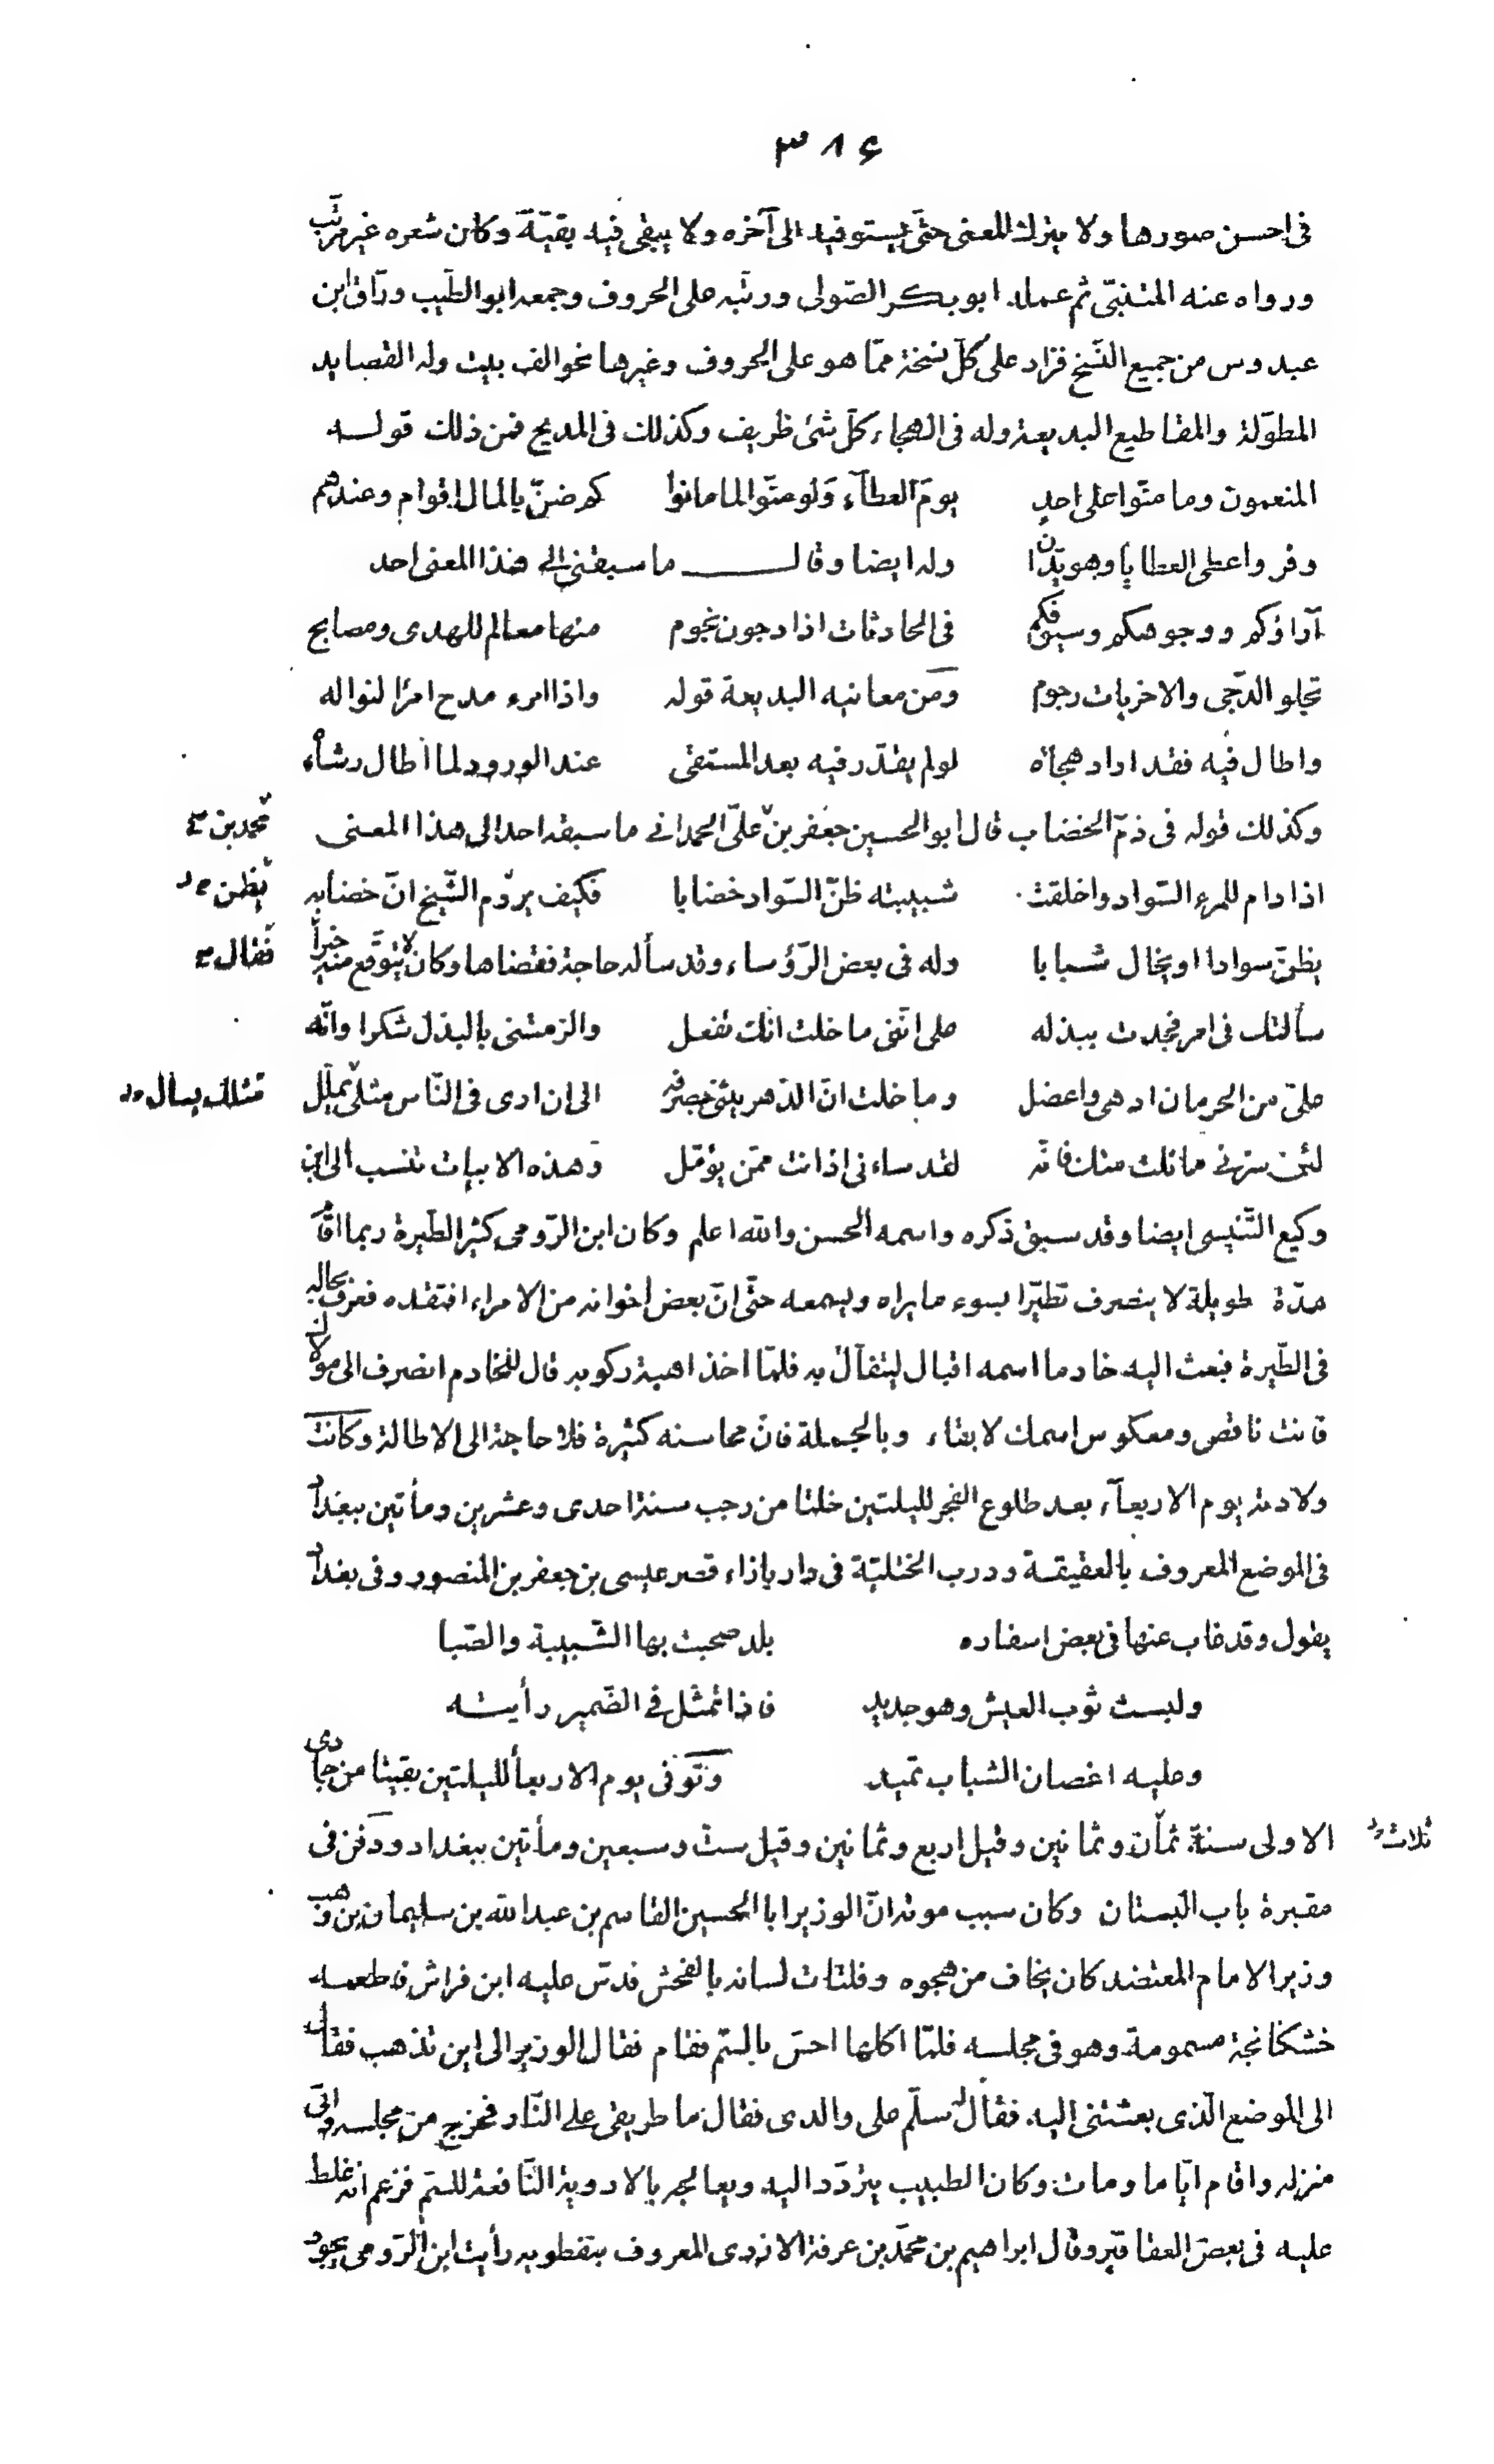 ٣٨٤
فى احسن صورها ولا يترك المعنى حتّى يستوفيه الى آخره ولا يبقى فيه بقيّة وكان شعره غير مرتّب
ورواه عنه المتنبّى ثم عمله ابو بكر الصّولى ورتّبه على الحروف وجمعه ابو الطّيب ورّاق ابن
عبدوس من جميع النّسخ فزاد على كلّ نسخة ممّا هو على الحروف وغيرها نحو الف بيت وله القصايد
المطوّلة والمقاطيع البديعة وله فى الهجاء كلّ شئ ظريف وكذلك فى المديح فمن ذلك قوله
المنعمون وما منّوا على احدٍ يومَ العطآء وَلو منّوا لما مانوا كم ضنّ بالمال اقوام وعندهم
وفر واعطى العطايا وهو يدّان وله ايضا وقال ما سبقنى الى هذا المعنى احد
آراؤكم ووجوهكم وسيوفكم فى الحادثات اذا دجون نجوم منها معالم للهدى ومصابح
تجلو الدّجى والاخريات رجوم ومن معانيه البديعة قوله واذا امرء مدح امرًا لنواله
واطال فيه فقد اراد هجآه لو لم يقدّر فيه بعد المستقى عند الورود لما اطال رشآه
وكذلك قوله فى ذمّ الخضاب قال ابو الحسين جعفر بن علىّ الحمدانى ما سبقه احد الى هذا المعنى محمد بن
اذا دام للمرء السّواد واخلقت شبيبته ظنّ السّواد خضابا فكيف يروم الشّيخ انّ خضابه يظن
يظنّ سوادا او يخال شبابا وله فى بعض الرّؤساء وقد سأله حاجة فقضاها وكان لا يتوقّع منه خيراً فقال
سألتك فى امر فجدت ببذله على انّنى ما خلت انّك تفعل والزمتنى بالبذل شكرا وانّه
علىّ من الحرمان ادهى واعضل وما خلت انّ الدّهر يثنى بصرفه الى ان ارى فى النّاس مثلى يملّل مثلك يسأل
لئن سرّنى ما نلت منك فانّه لقد ساءنى اذ انت ممّن يؤمّل وهذه الابيات تنسب الى ابن
وكيع التّنيسى ايضا وقد سبق ذكره واسمه الحسن والله اعلم وكان ابن الرّومى كثير الطّيرة ربما اقام
مدّة طويلة لا ينصرف تطيّرا بسوء ما يراه ويسمعه حتّى انّ بعض اخوانه من الامراء افتقده فعرف بحاله
فى الطّيرة فبعث اليه خادما اسمه اقبال ليتفآل به فلمّا اخذ اهبة ركوبه قال للخادم انصرف الى مولاك
فانت ناقص ومعكوس اسمك لا بقاء وبالجملة فانّ محاسنه كثيرة فلا حاجة الى الاطالة وكانت
ولادته يوم الاربعآء بعد طلوع الفجر لليلتين خلتا من رجب سنة احدى وعشرين ومأتين ببغداد
فى الموضع المعروف بالعقيقة ودرب الختليّة فى دار بازاء قصر عيسى بن جعفر بن المنصور وفى بغداد
يقول وقد غاب عنها فى بعض اسفاره بلد صحبت بها الشّبيبة والصّبا
ولبست ثوب العيش وهو جديد فاذا تمثّل فى الضّمير رأيته
وعليه اغصان الشباب تميد وتوفى يوم الاربعاء لليلتين بقيتا من جمادى
الاولى سنة ثمان وثمانين وقيل اربع وثمانين وقيل ستّ وسبعين ومأتين ببغداد ودفن فى ثلاث
مقبرة باب البستان وكان سبب موته انّ الوزير ابا الحسين القاسم بن عبد الله بن سليمان بن وهب
وزير الامام المعتضد كان يخاف من هجوه وفلتات لسانه بالفحش فدسّ عليه ابن فراش فاطعمه
خشكنانجة مسمومة وهو فى مجلسه فلمّا اكلها احسّ بالسّم فقام فقال الوزير الى اين تذهب فقال
الى الموضع الّذى بعثتنى اليه فقال له سلّم على والدى فقال ما طريقى على النّار فخرج من مجلسه واتى
منزله واقام ايّاما ومات وكان الطبيب يتردّد اليه ويعالجه بالادوية النّافعة للسّم فزعم انه غلط
عليه فى بعض العقاقير وقال ابراهيم بن محمّد بن عرفة الازدى المعروف بنفطويه رأيت ابن الرّومى يجود